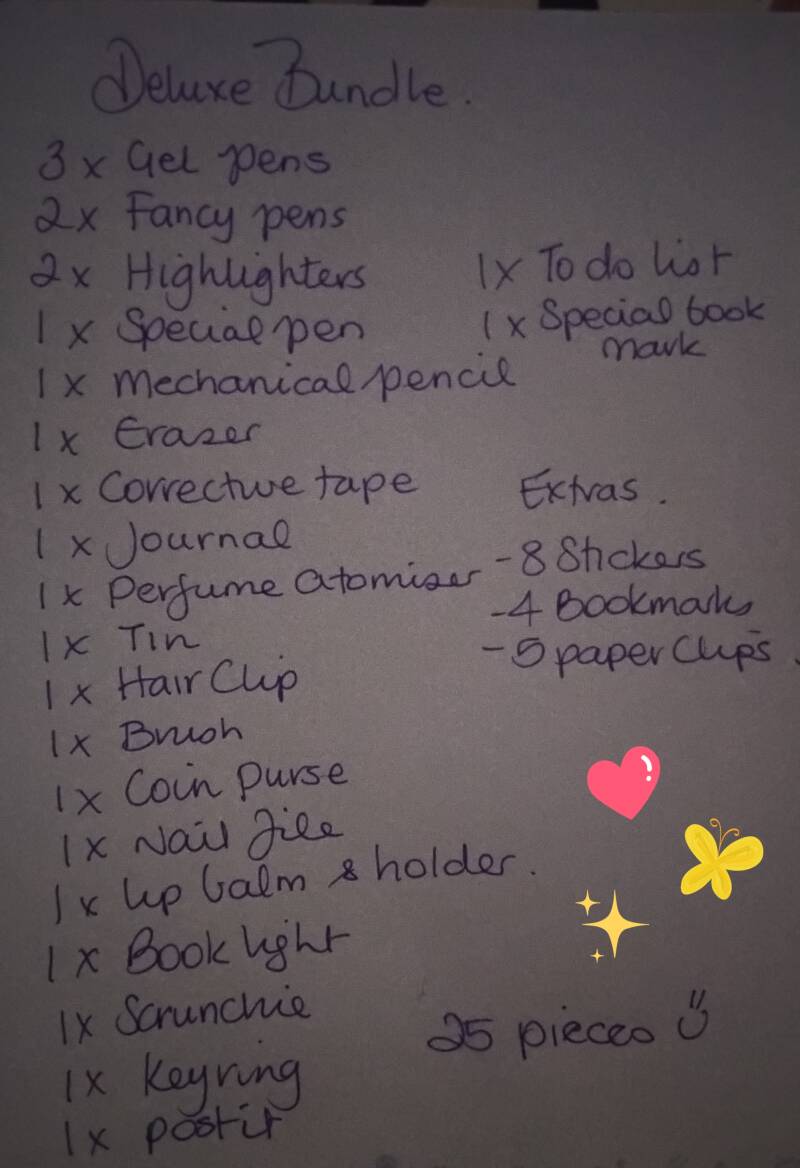 Deluxe Bundle.
3 x Gel pens
2x Fancy pens
2x Highlighters
1 x Special pen
1 x Mechanical pencil
1 x Eraser
1 x Corrective tape
1 x Journal
1 x Perfume atomiser
1 x Tin
1 x Hair Clip
1x Brush
1x Coin Purse
1 x Nail file
1 x lip balm & holder.
1 x Book light
1x Scrunchie
1x Keyring
1x postit
1x To do list
1 x Special book
mark
Extras.
- 8 Stickers
- 4 Bookmarks
- 5 paper Clips.
25 pieces